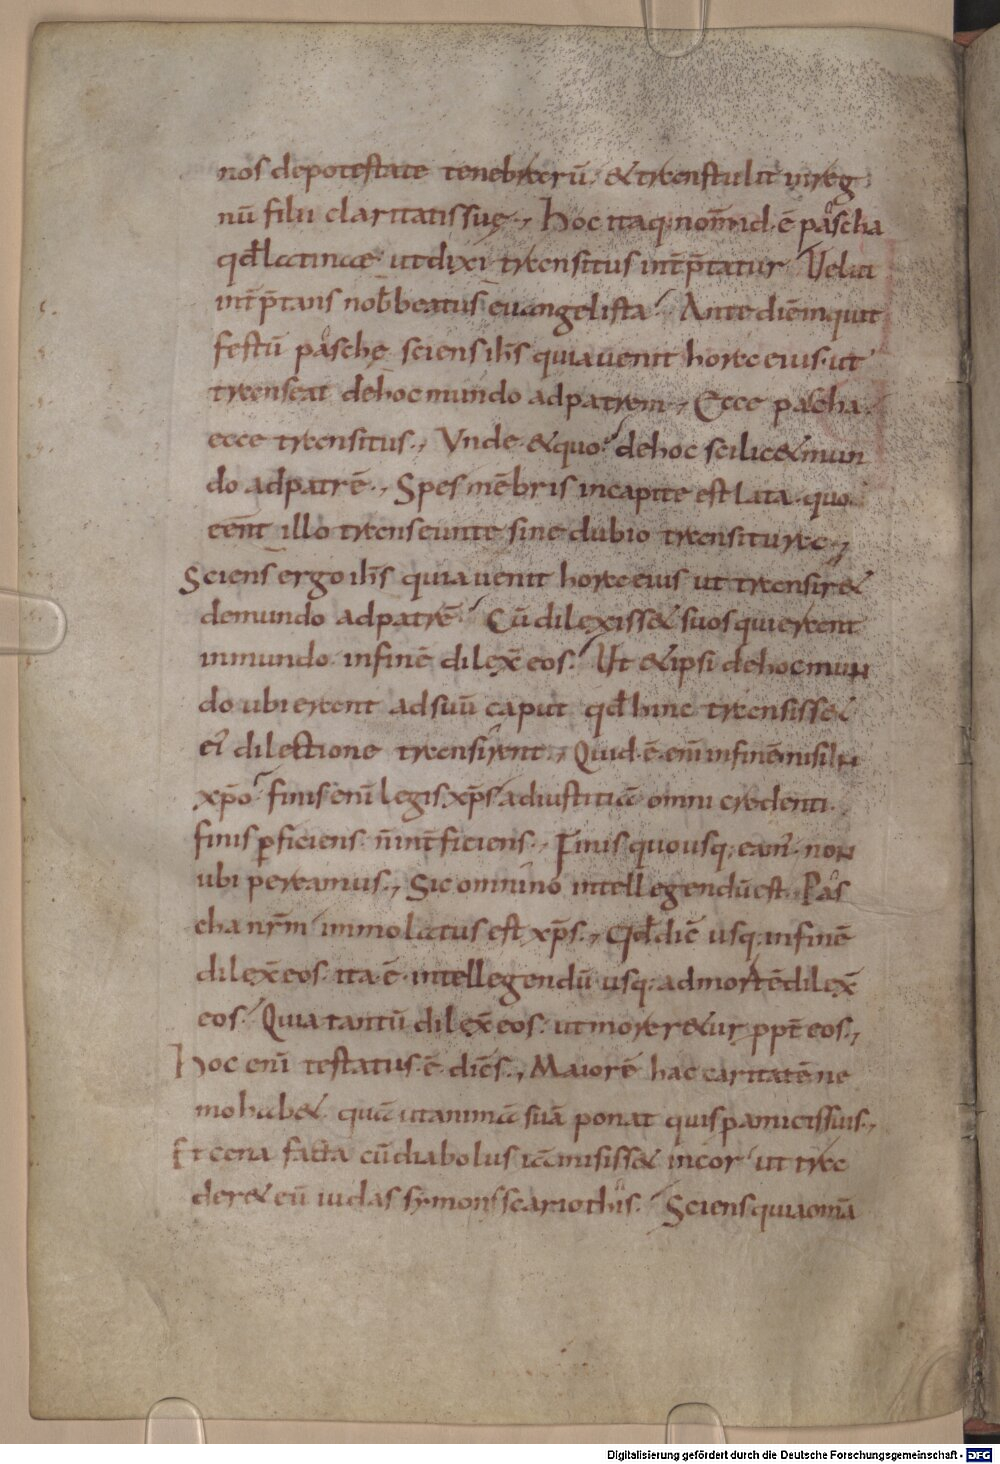 nos depotestate tenebrarū, & transtulit inreg
nū filii claritatis suę., Hoc itaq; nom̄ id.ē pascha
qd̄ latinae ut dixi transitus int̄p̄tatur Velut
int̄p̄tans nob̄ beatus euangelista. Ante diēm inquit
festū paschę sciens ih̄s quia uenit hora eius. ut
transeat dehoc mundo adpatrem., Ecce pascha.
ecce transitus., Vnde &quo. dehoc scilic& mun
do adpatrē., Spes mēbris incapite est lata. quo
eēnt illo transeunte sine dubio transitura.,
Sciens ergo ih̄s quia uenit hora eius ut transir&
demundo adpatrē Cū dilexiss& suos qui erant
inmundo. infinē dilex̄ eos. Ut &ipsi dehoc mun
do ubi erant adsuū caput qd̄ hinc transiss&
ei dilectione transirent., Quid.ē.enī infinē nisi in
xp̄o finis enī legis xp̄s. adiustitiā omni credenti.
finis ꝑficiens. n̄ int̄ficiens., Finis quousq; eam'. non
ubi pereamus., Sic omnino intellegendū est. Pas
cha nr̄m immolatus est xp̄s., Qd̄ dic̄ usq; infinē
dilex̄ eos. ita.ē intellegendū usq; admortē dilex̄
eos. Quia tantū dilex̄ eos. ut morer&ur ppt̄ eos.,
Hoc enī testatus.ē dic̄s., Maiorē hac caritatē ne
mo hab& quā ut animā suā ponat quis ꝑ amicis suis.,
Et cena facta cū diabolus iā misiss& incor ut tra
der& eū iudas symon scariothis. Sciens quia omīa
Digitalisierung gefördert durch die Deutsche Forschungsgemeinschaft - DFG